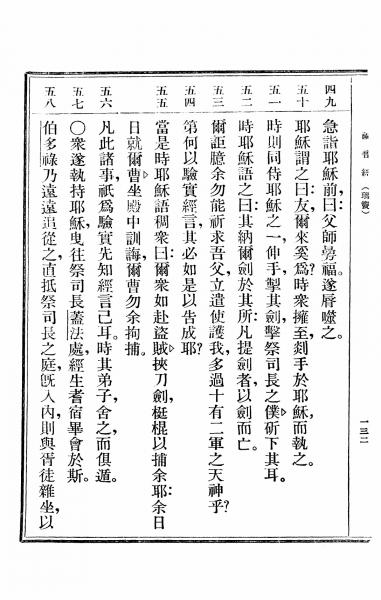 四九 急詣耶穌前曰父師勞福遂唇噬之。
五十 耶穌謂之曰友爾來奚為?時衆擁至剗手於耶穌而執之。
五一 時則同侍耶穌之一伸手掣其劍擊祭司長之僕斫下其耳。
五二 時耶穌語之曰其納爾劍於其所凡提劍者以劍而亡。
五三 爾詎臆余勿能祈求吾父立遣使護我多過十有二軍之天神乎?
五四 第何以驗實經言其必如是以告成耶?
五五 當是時耶穌語稠衆曰爾衆如赴盜賊挾刀劍梃棍以捕余耶:余日
日就爾曹坐殿中訓誨爾曹勿余拘捕。
五六 凡此諸事祇為驗實先知經言己耳。時其弟子舍之而俱遁。
五七 〇衆遂執持耶穌曳往祭司長蓋法處經生耆宿畢會於斯。
五八 伯多祿乃遠遠追從之直抵祭司長之庭旣入內則與胥徒雜坐以
一三二